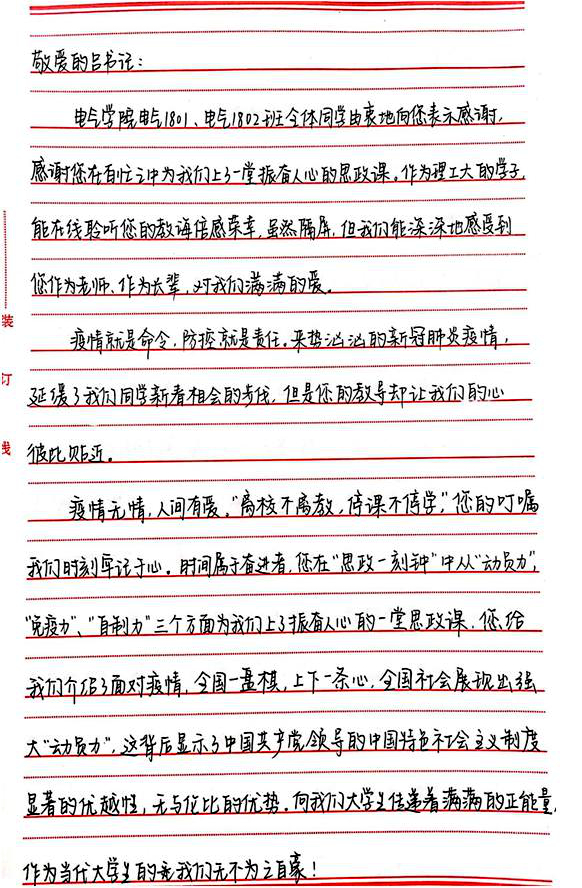 敬爱的吕书记：
电气学院电气1801、电气1802班全体同学由衷地向您表示感谢，
感谢您在百忙之中为我们上了一堂振奋人心的思政课。作为理工大的学子，
能在线聆听您的教诲倍感荣幸，虽然隔屏，但我们能深深地感受到
您作为老师、作为长辈，对我们满满的爱。
疫情就是命令，防控就是责任。来势汹汹的新冠肺炎疫情，
延缓了我们同学新春相会的步伐，但是您的教导却让我们的心
彼此贴近。
疫情无情，人间有爱。“离校不离教，停课不停学”，您的叮嘱
我们时刻牢记于心。时间属于奋进者，您在“思政一刻钟”中从“动员力”，
“免疫力”、“自制力”三个方面为我们上了振奋人心的一堂思政课，您给
我们介绍了面对疫情，全国一盘棋，上下一条心，全国社会展现出强
大“动员力”，这背后显示了中国共产党领导的中国特色社会主义制度
显著的优越性，无与伦比的优势。向我们大学生传递着满满的正能量，
作为当代大学生的我们无不为之自豪！
装
订
线